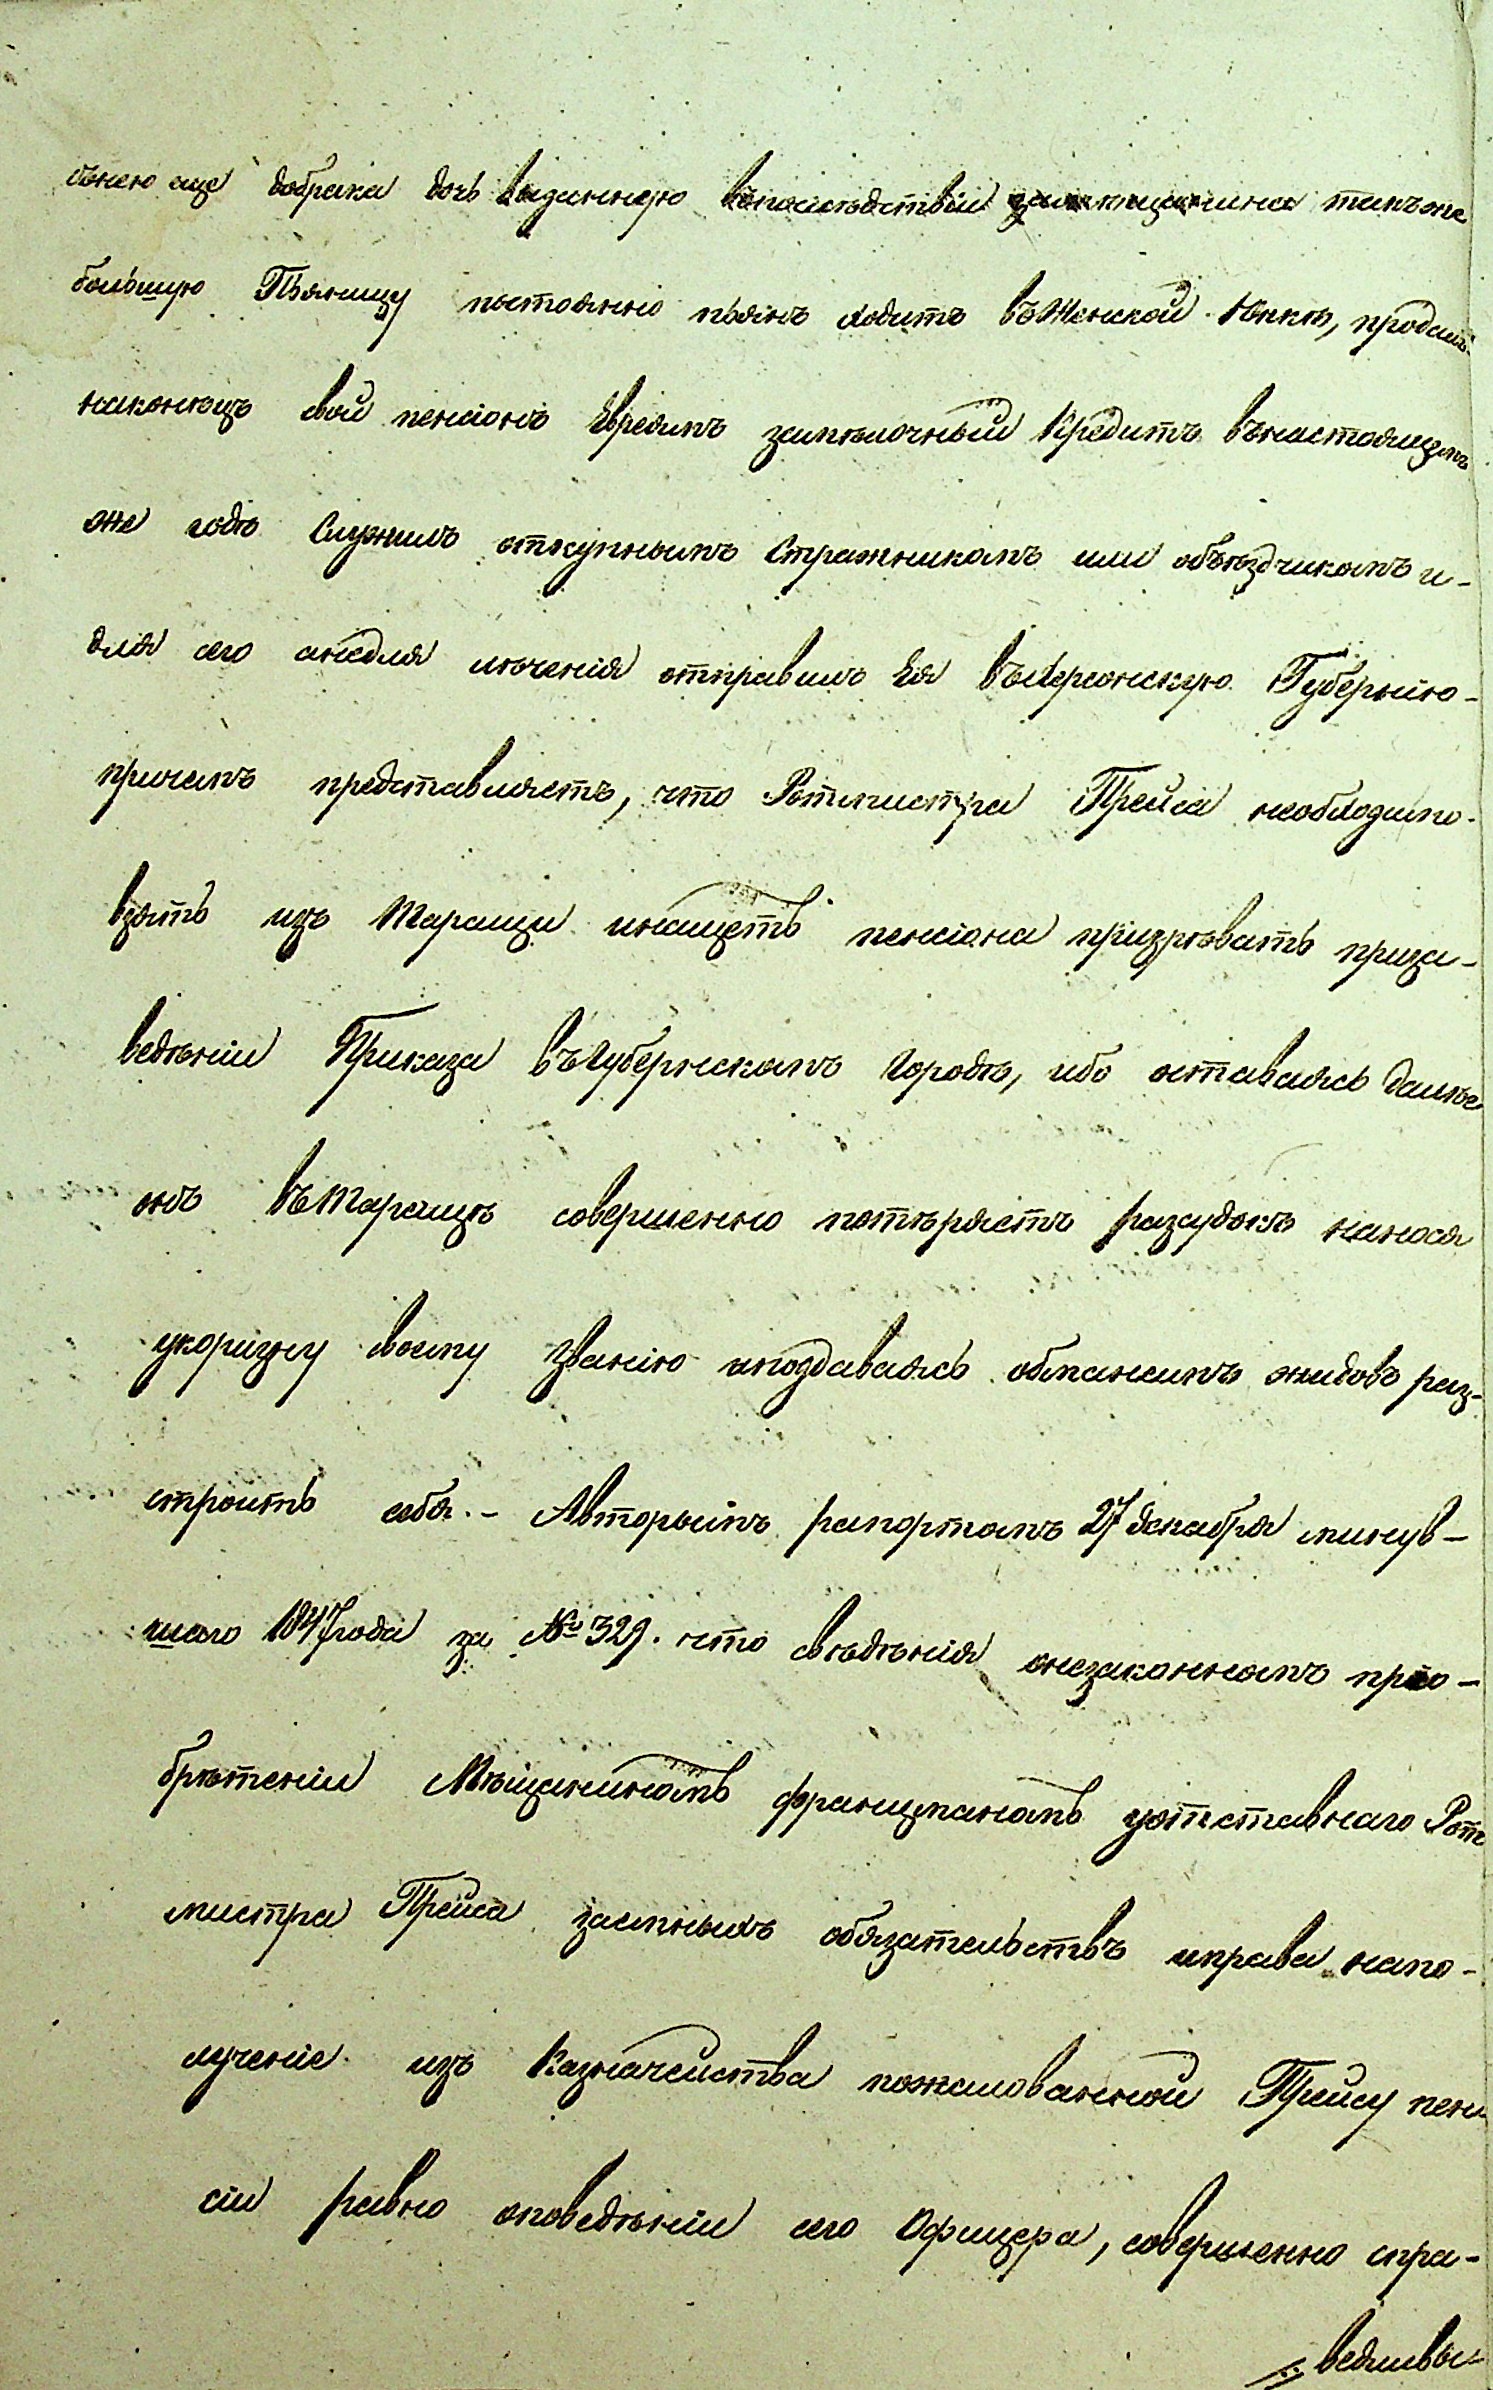 сънею еще добрака дочь выданную въпослѣдствіи замѣщанина такъже
большую Пьяницу постоянно пьянъ ходитъ въ Женской Юпкѣ, продалъ
наконецъ свой пенсіонъ Евреямъ замѣлочный Кредитъ внастоящемъ
же годѣ Служилъ откупнымъ Стражникомъ или объѣздчикомъ и-
для сего анедля леченія отправилъ Ея въХерсонскую Губернію-
причемъ представляетъ, что Ротмистра Прейса необходимо-
взять изъ Таращи инащетъ пенсіона призрѣвать приза-
ведѣніи Приказа въГубернскомъ Городѣ, ибо оставаясь далѣе
онъ въТаращѣ совершенно потѣряетъ разсудокъ нанося
укоризну своему Званію иподдаваясь обманамъ жидовъ раз-
строитъ себя.- Авторымъ рапортомъ 27 декабря минув-
шаго 1847 года за № 329. что свѣдѣнія онезаконномъ прiо-
брѣтеніи Мѣщаниномъ францманомъ уотставнаго Рот
мистра Прейса заемныхъ обязательствъ иправа напо-
лученіе изъ Казначейства пожалованной Прейсу пен-
сіи равно оповедѣніи сего Офицера, совершенно спра-
ведливы-